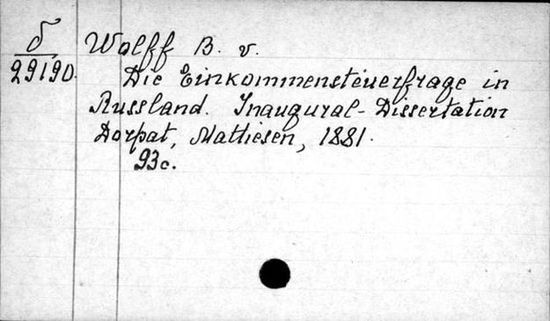 δ
29190.
Wolff B. v.
Die Einkommensteuerfrage in
Russland. Inaugural-Dissertation
Dorpat, Mathiesen, 1881.
93c.